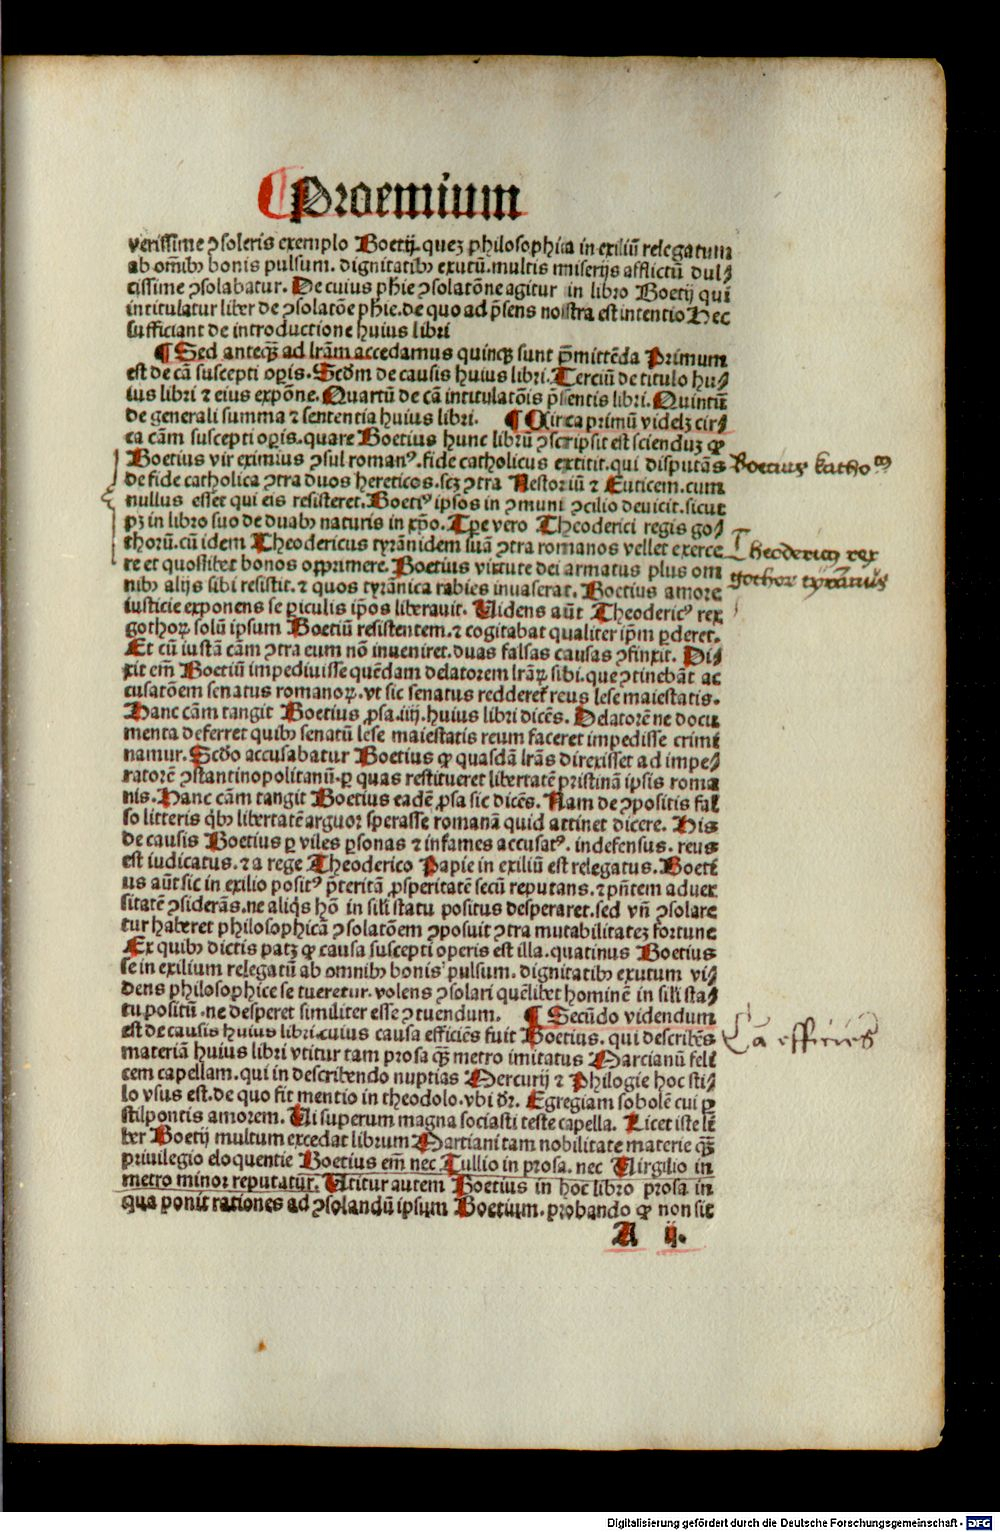 Praemium
verissime ꝯsoleris exemplo Boetij. quez philosophiia in exiliū relegatum
ab om̄ibꝫ bonis pulsum. dignitatibꝫ exutū. multis miserijs afflictū dul⸗
cissime ꝯsolabatur. De cuius phie ꝯsolatōne agitur in libro Boetij qui
intitulatur liber de ꝯsolatōe phie. de quo ad p̄sens nostra est intentio Hec
sufficiant de introductione huius libri
¶ Sed anteqꝫ̄ ad lr̄am accedamus quincꝫ sunt p̄mittēda Primum
est de cā suscepti oꝑis. Scd̄m de causis huius libri. Terciū de titulo hu⸗
ius libri ⁊ eius expōne. Quartū de cā intitulatōis p̄sentis libri. Quintū
de generali summa ⁊ sententia huius libri. ¶ Circa primū videlꝫ cir⸗
ca cām suscepti oꝑis. quare Boetius hunc librū ꝯscripsit est scienduz ꝙ
Boetius vir eximius ꝯsul romanꝰ. fide catholicus extitit. qui disputās
de fide catholica ꝯtra duos hereticos. scꝫ ꝯtra Nestoriū ⁊ Euticem. cum
nullus esset qui eis resisteret. Boetiꝰ ipsos in ꝯmuni ꝯcilio deuicit. sicut
pꝫ in libro suo de duabꝫ naturis in xp̄o. Tp̄e vero Theoderici regis go⸗
thorū. cū idem Theodericus tyrānidem suā ꝯtra romanos vellet exerce
re et quoslibet bonos opprimere. Boetius virtute dei armatus plus om
nibꝫ alijs sibi resistit. ⁊ quos tyrānica rabies inuaserat. Boetius amore
iusticie exponens se ꝑiculis ip̄os liberauit. Videns aūt Theodericꝰ rex
gothoꝝ solū ipsum Boetiū resistentem. ⁊ cogitabat qualiter ip̄m ꝑderet.
Et cū iustā cām ꝯtra eum nō inueniret. duas falsas causas ꝯfinxit. Di⸗
xit em̄ Boetiū impediuisse quēdam delatorem lr̄aꝝ sibi. que ꝯtinebāt ac
cusatōem senatus romanoꝝ. vt sic senatus redderet̄ reus lese maiestatis.
Hanc cām tangit Boetius ꝓsa .iiij. huius libri dicēs. Delatorē ne docu
menta deferret quibꝫ senatū lese maiestatis reum faceret impedisse crimi
namur. Scd̄o accusabatur Boetius ꝙ quasdā lr̄as direxisset ad impe⸗
ratorē ꝯstantinopolitanū. ꝑ quas restitueret libertatē pristinā ipsis roma
nis. Hanc cām tangit Boetius eadē ꝓsa sic dicēs. Nam de ꝯpositis fal
so litteris qͥbꝫ libertatē arguor sperasse romanā quid attinet dicere. His
de causis Boetius ꝑ viles ꝑsonas ⁊ infames accusatꝰ. indefensus. reus
est iudicatus. ⁊ a rege Theoderico Papie in exiliū est relegatus. Boeti
us aūt sic in exilio positꝰ p̄teritā ꝓsꝑeritatē secū reputans. ⁊ pn̄tem aduer
sitatē ꝯsiderās. ne aliqͥs hō in sili statu positus desperaret. sed vn̄ ꝯsolare
tur haberet philosophicā ꝯsolatōem ꝯposuit ꝯtra mutabilitatez fortune
Ex quibꝫ dictis patꝫ ꝙ causa suscepti operis est illa. quatinus Boetius
se in exilium relegatū ab omnibꝫ bonis pulsum. dignitatibꝫ exutum vi⸗
dens philosophice se tueretur. volens ꝯsolari quēlibet hominē in sili sta⸗
tu positū. ne desperet similiter esse ꝯtuendum. ¶ Secūdo videndum
est de causis huius libri. cuius causa efficiēs fuit Boetius. qui describēs
materiā huius libri vtitur tam prosa qꝫ̄ metro imitatus Marcianū feli
cem capellam. qui in describendo nuptias Mercurij ⁊ Philogie hoc sti⸗
lo vsus est. de quo fit mentio in theodolo. vbi dr̄. Egregiam sobolē cui ꝑ
stilpontis amorem. Ui superum magna sociasti teste capella. Licet iste lē
ber Boetij multum excedat librum Martiani tam nobilitate materie qꝫ̄
priuilegio eloquentie Boetius em̄ nec Tullio in prosa. nec Virgilio in
metro minor reputatur̄. Utitur autem Boetius in hoc libro prosa in
qua ponit rationes ad ꝯsolandū ipsum Boetium. probando ꝙ non sit
A ij.
Boetius katho^cꝰ
Theodericus rex
gothoꝝ tyrānus
Ca efficiēs
Digitalisierung gefördert durch die Deutsche Forschungsgemeinschaft - DFG